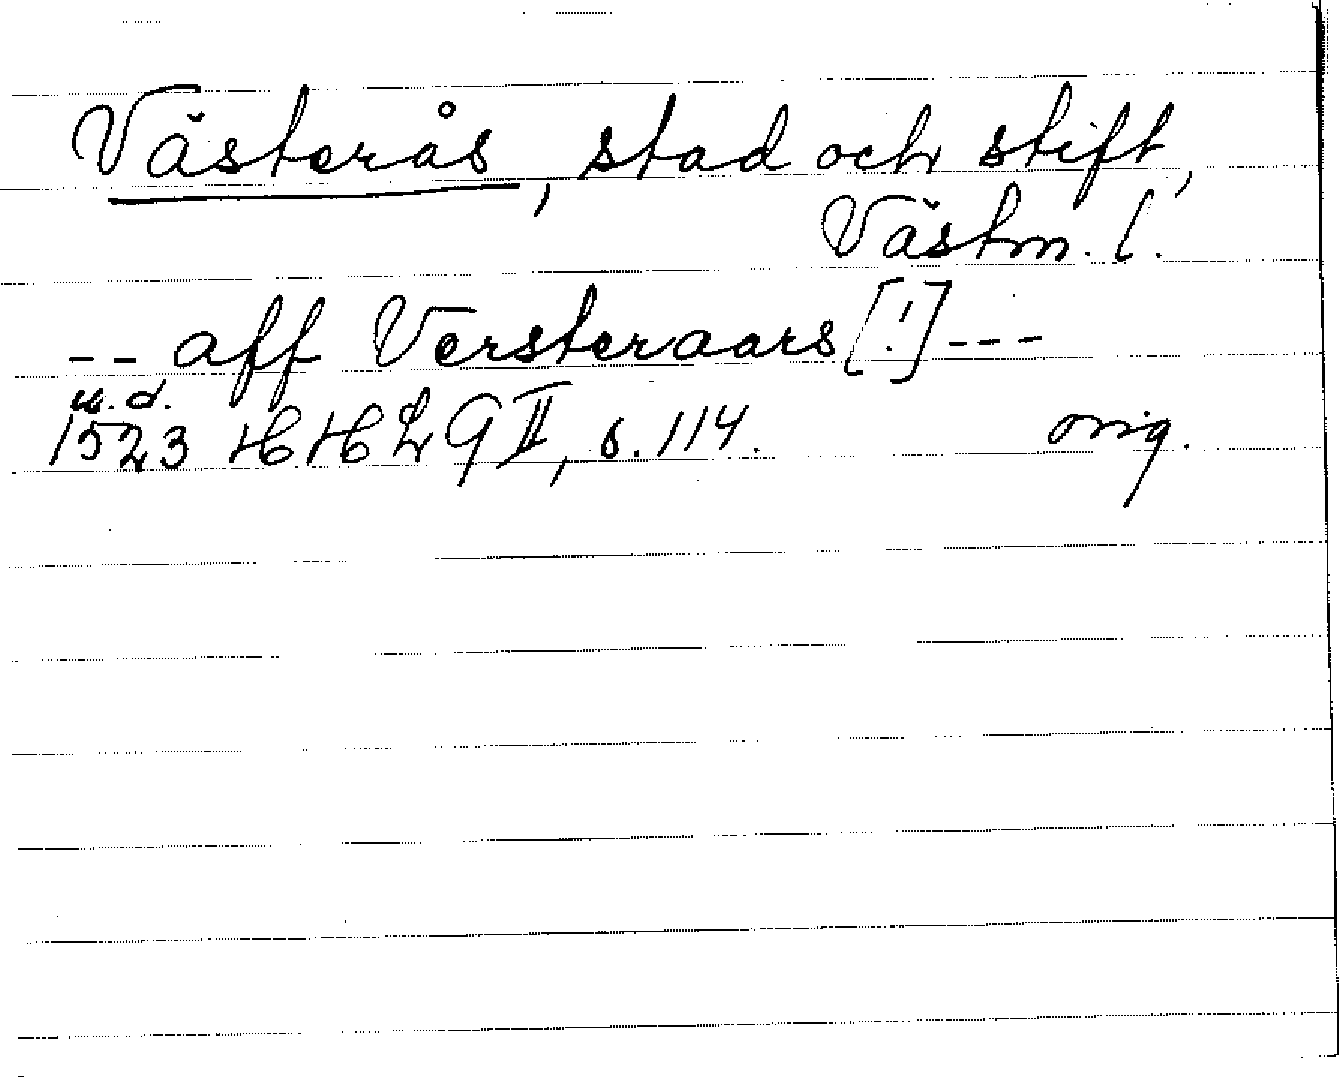 Västerås, stad och stift,
Västm. l.
-- aff Versteraars [!] ---
u.d.
1523 HHL 9 II, s. 114. orig.